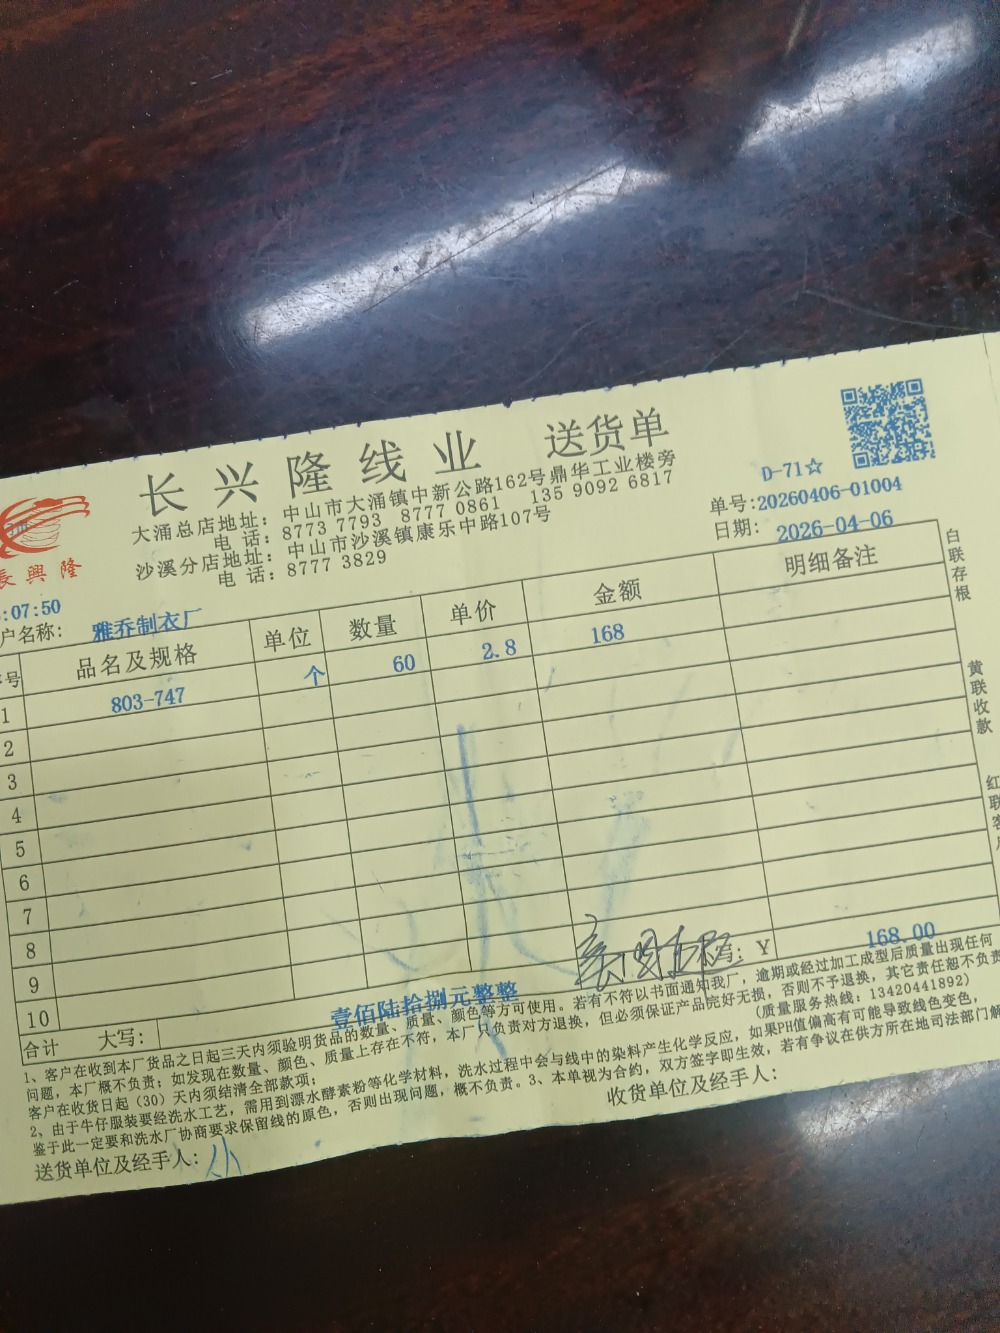 长兴隆线业 送货单
大涌总店地址：中山市大涌镇中新公路162号鼎华工业楼旁
电话：8773 7793 8777 0861 135 9092 6817
沙溪分店地址：中山市沙溪镇康乐中路107号
电话：8777 3829
長興隆
D-71☆
单号:20260406-01004
日期: 2026-04-06
:07:50
户名称: 雅乔制衣厂
号 品名及规格 单位 数量 单价 金额 明细备注
1 803-747 个 60 2.8 168
2
3
4
5
6
7
8
9
10
合计 大写: 壹佰陆拾捌元整整 Y 168.00
1、客户在收到本厂货品之日起三天内须验明货品的数量、质量、颜色等方可使用。若有不符以书面通知我厂，逾期或经过加工成型后质量出现任何
问题，本厂概不负责；如发现在数量、颜色、质量上存在不符，本厂只负责对方退换，但必须保证产品完好无损，否则不予退换，其它责任恕不负责
客户在收货日起（30）天内须结清全部款项； （质量服务热线：13420441892）
2、由于牛仔服装要经洗水工艺，需用到漂水酵素粉等化学材料，洗水过程中会与线中的染料产生化学反应，如果PH值偏高有可能导致线色变色，
鉴于此一定要和洗水厂协商要求保留线的原色，否则出现问题，概不负责。3、本单视为合约，双方签字即生效，若有争议在供方所在地司法部门解
送货单位及经手人: 小
收货单位及经手人:
白联存根
黄联收款
红联客